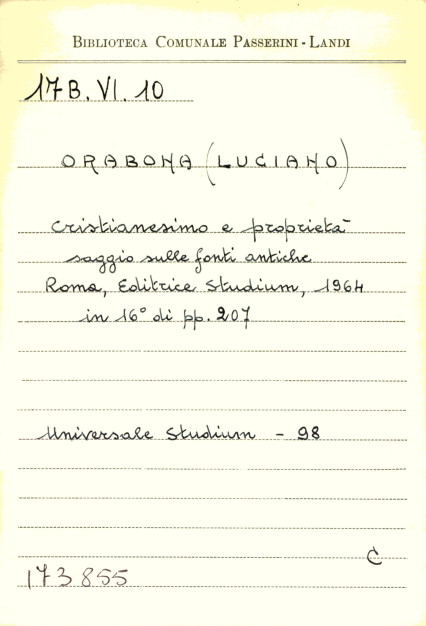 BIBLIOTECA COMUNALE PASSERINI - LANDI
17B. VI. 10
ORABONA (LUCIANO)
Cristianesimo e proprietà
saggio sulle fonti antiche
Roma, Editrice Studium, 1964
in 16° di pp. 207
Universale Studium - 98
C
173855